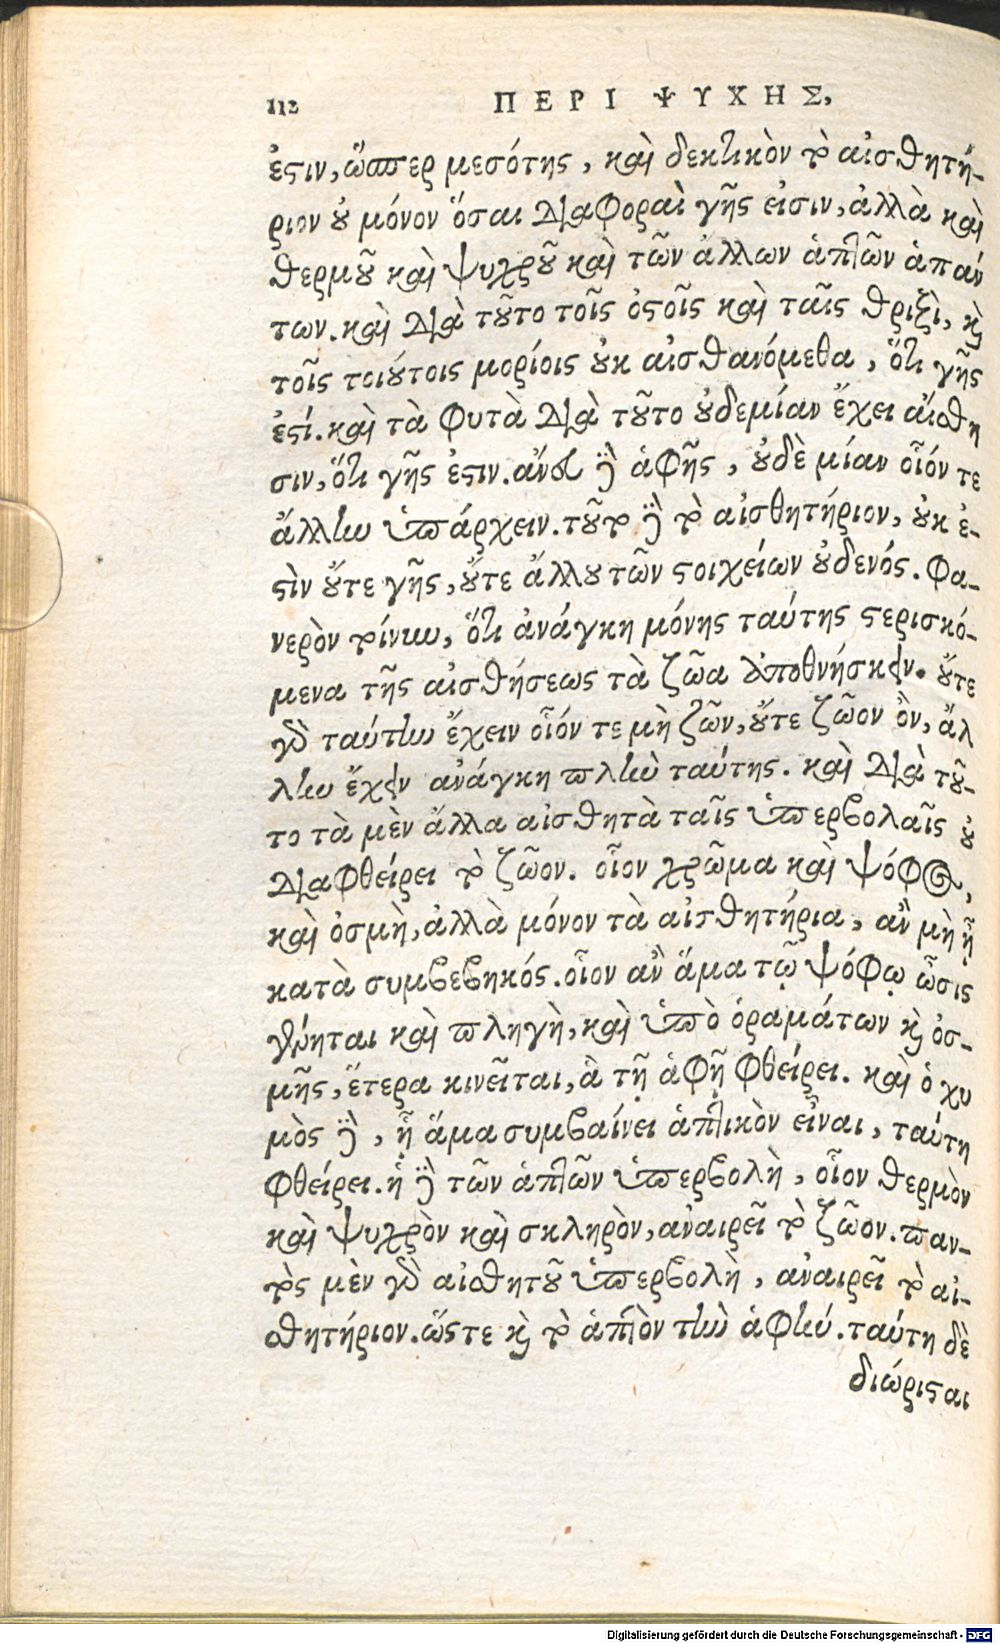 112 ΠΕΡΙ ΨΥΧΗΣ,
ἐϛιν, ὥσπερ μεσότης, καὶ δεκτικὸν τὸ αἰσθητή-
ριον οὐ μόνον ὅσαι διαφοραὶ γῆς εἰσιν, ἀλλὰ καὶ
θερμοῦ καὶ ψυχροῦ καὶ τῶν ἄλλων ἁπτῶν ἁπάν
των. καὶ διὰ τοῦτο τοῖς ὀϛοῖς καὶ ταῖς θριξὶ, καὶ
τοῖς τοιούτοις μορίοις οὐκ αἰσθανόμεθα, ὅτι γῆς
ἐϛί. καὶ τὰ φυτὰ διὰ τοῦτο οὐδεμίαν ἔχει αἴσθη
σιν, ὅτι γῆς ἐϛιν. ἄνευ δὲ ἁφῆς, οὐδὲ μίαν οἷόν τε
ἄλλην ὑπάρχειν. τοῦτο δὲ τὸ αἰσθητήριον, οὐκ ἐ-
ϛὶν οὔτε γῆς, οὔτε ἄλλου τῶν ϛοιχείων οὐδενός. φα-
νερὸν τοίνυν, ὅτι ἀνάγκη μόνης ταύτης ϛερισκό-
μενα τῆς αἰσθήσεως τὰ ζῶα ἀποθνήσκειν. οὔτε
γὰρ ταύτην ἔχειν οἷόν τε μὴ ζῶν, οὔτε ζῶον ὂν, ἄλ
λην ἔχειν ἀνάγκη πλὴν ταύτης. καὶ διὰ τοῦ-
το τὰ μὲν ἄλλα αἰσθητὰ ταῖς ὑπερβολαῖς οὐ
διαφθείρει τὸ ζῶον. οἷον χρῶμα καὶ ψόφος,
καὶ ὀσμὴ, ἀλλὰ μόνον τὰ αἰσθητήρια, ἂν μὴ ᾖ
κατὰ συμβεβηκός. οἷον ἂν ἅμα τῷ ψόφῳ ὦσις
γένηται καὶ πληγὴ, καὶ ὑπὸ ὁραμάτων καὶ ὀσ-
μῆς, ἕτερα κινεῖται, ἃ τῇ ἁφῇ φθείρει. καὶ ὁ χυ
μὸς δὲ, ᾗ ἅμα συμβαίνει ἁπτικὸν εἶναι, ταύτη
φθείρει. ἡ δὲ τῶν ἁπτῶν ὑπερβολὴ, οἷον θερμὸν
καὶ ψυχρὸν καὶ σκληρὸν, ἀναιρεῖ τὸ ζῶον. παν-
τὸς μὲν γὰρ αἰσθητοῦ ὑπερβολὴ, ἀναιρεῖ τὸ αἰ-
σθητήριον. ὥϛτε καὶ τὸ ἁπτὸν τὴν ἁφήν. ταύτη δὲ
διώριϛαι
Digitalisierung gefördert durch die Deutsche Forschungsgemeinschaft - DFG